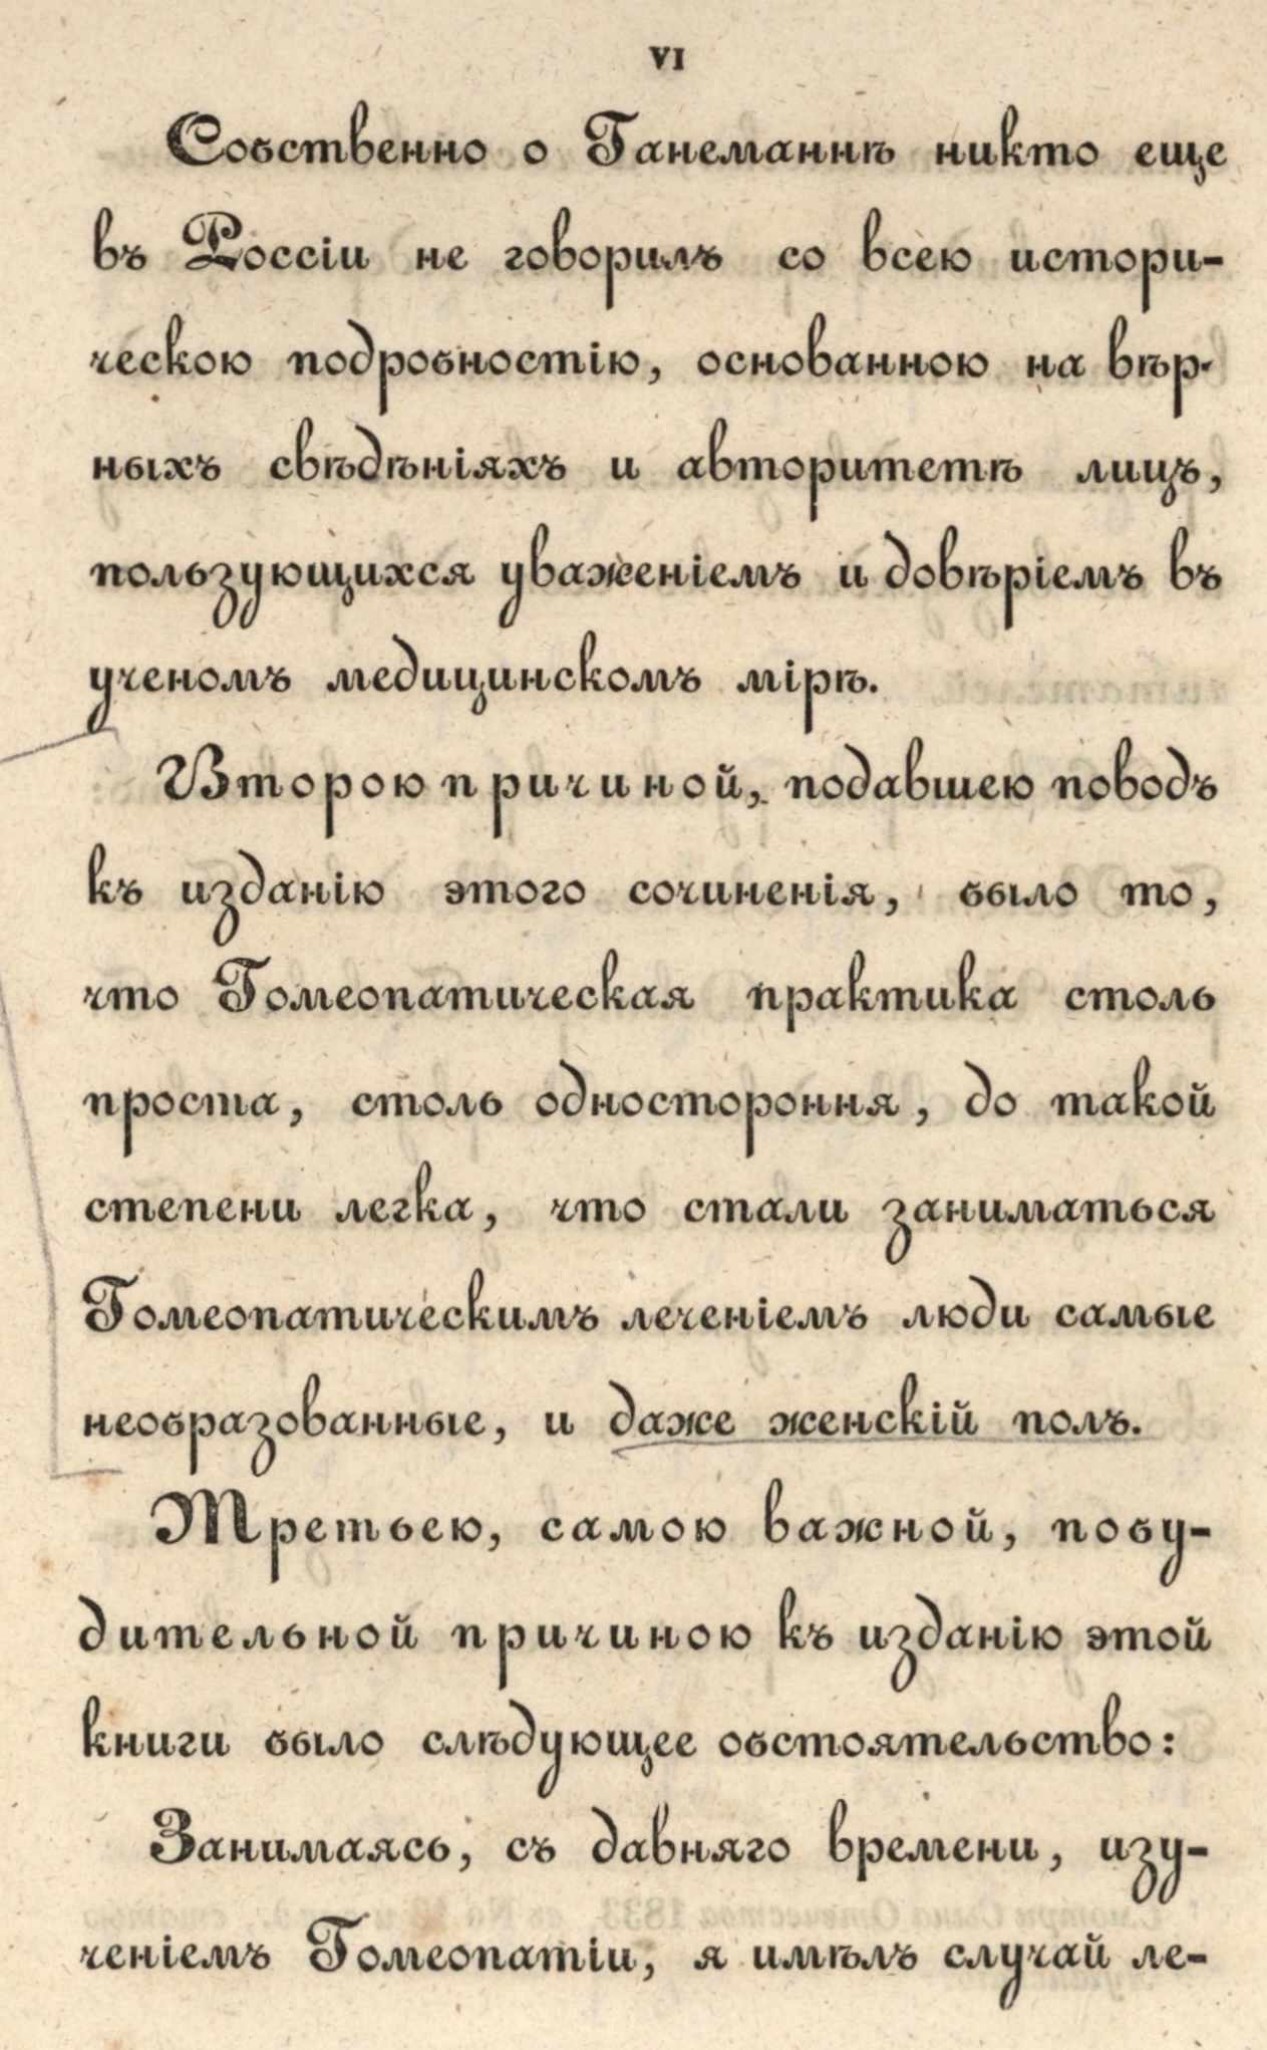 VI
Собственно о Ганеманнѣ никто еще
въ Россіи не говорилъ со всею истори-
ческою подробностію, основанною на вѣр-
ныхъ свѣдѣніяхъ и авторитетѣ лицъ,
пользующихся уваженіемъ и довѣріемъ въ
ученомъ медицинскомъ мірѣ.
Второю причиной, подавшею поводъ
къ изданію этого сочиненія, было то,
что Гомеопатическая практика столь
проста, столь одностороння, до такой
степени легка, что стали заниматься
Гомеопатическимъ леченіемъ люди самые
необразованные, и даже женскій полъ.
Третьею, самою важной, побу-
дительной причиною къ изданію этой
книги было слѣдующее обстоятельство:
Занимаясь, съ давняго времени, изу-
ченіемъ Гомеопатіи, я имѣлъ случай ле-